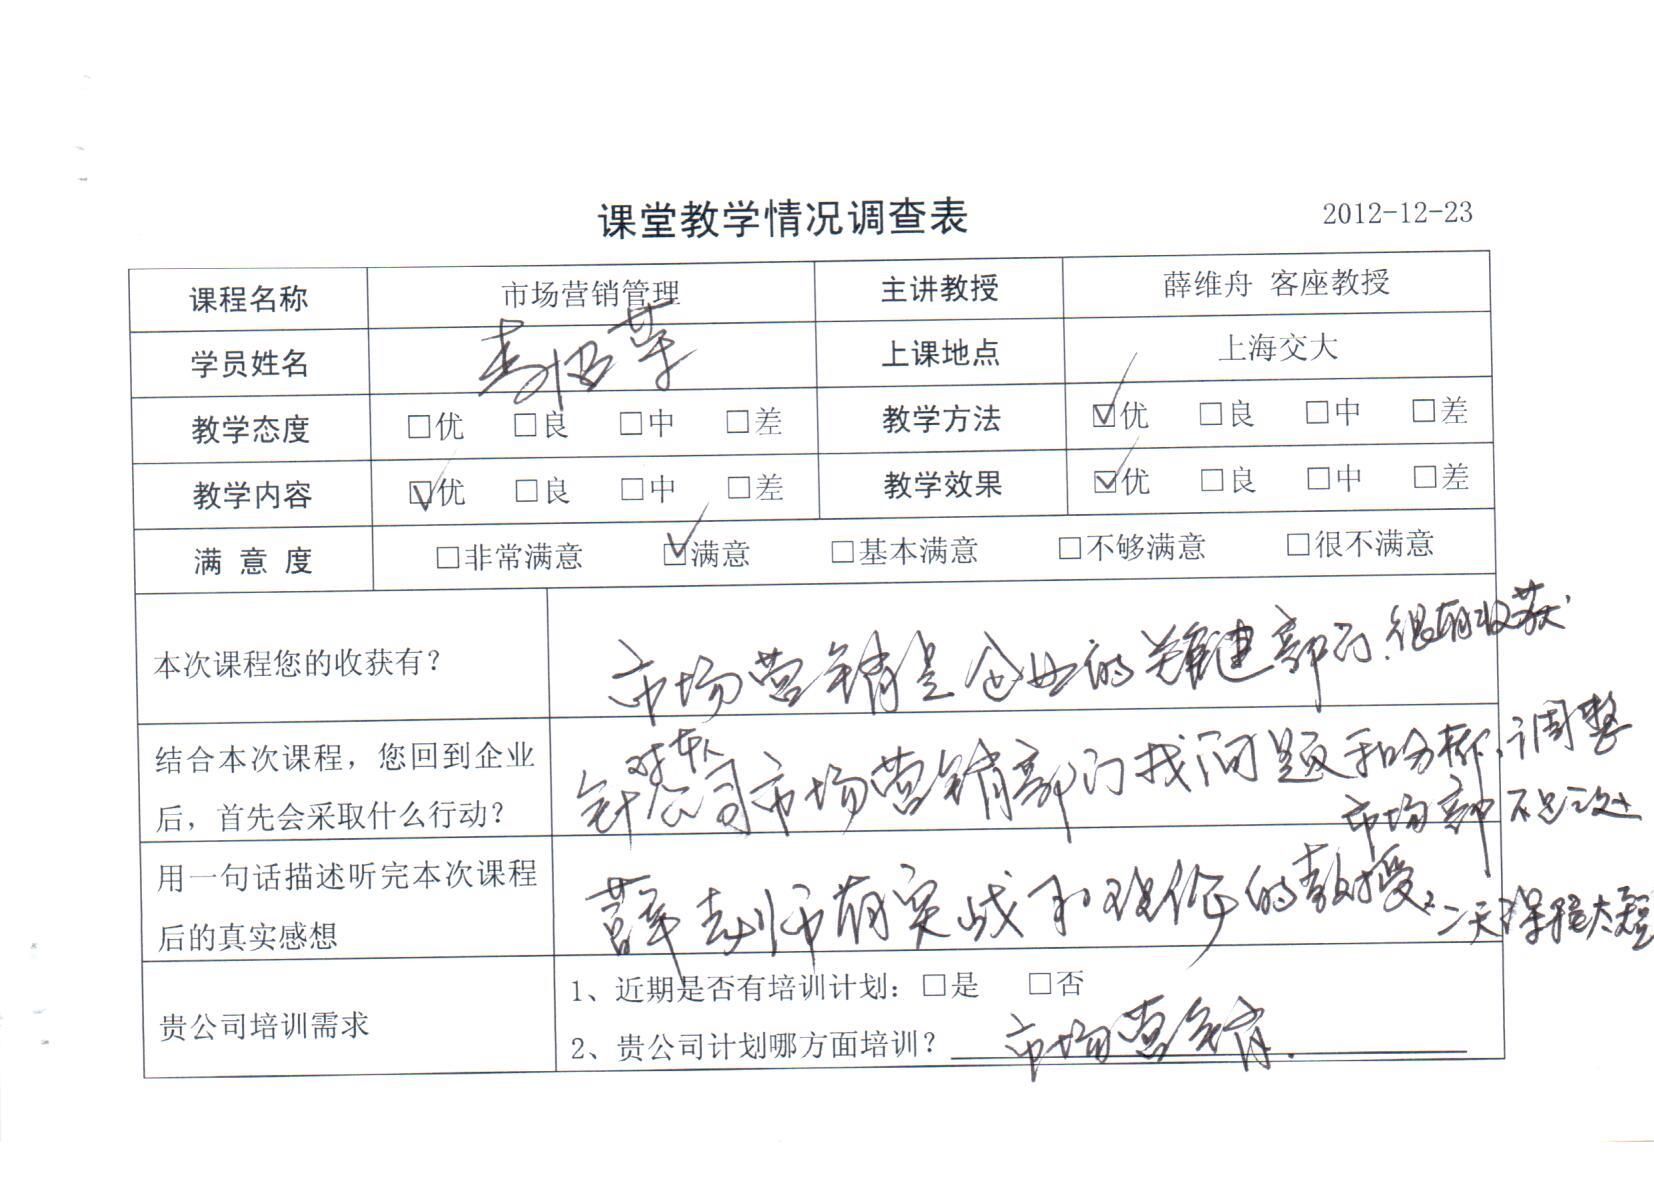 课堂教学情况调查表
2012-12-23
课程名称 市场营销管理 主讲教授 薛维舟 客座教授
学员姓名 上课地点 上海交大
教学态度 □优 □良 □中 □差 教学方法 ☑优 □良 □中 □差
教学内容 ☑优 □良 □中 □差 教学效果 ☑优 □良 □中 □差
满意度 □非常满意 ☑满意 □基本满意 □不够满意 □很不满意
本次课程您的收获有？
市场营销是企业的关键部门.很有收获
结合本次课程，您回到企业
后，首先会采取什么行动？
针对本人公司市场营销部门找问题和分析，调整
市场部不足之处
用一句话描述听完本次课程
后的真实感想
薛老师有实战和理论的教授，二天课程太短
贵公司培训需求
1、近期是否有培训计划：□是 □否
2、贵公司计划哪方面培训？市场营销.